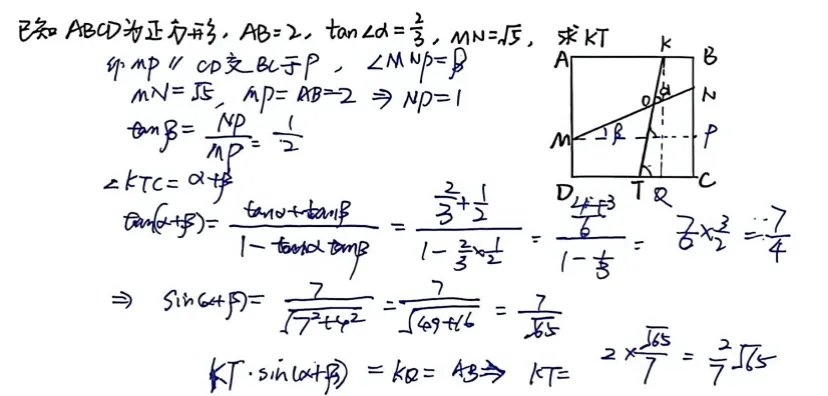 已知 ABCD为正方形, AB=2, tan∠α=2/3, MN=√5, 求KT
作MP∥CD交BC于P, ∠MNP=β
MN=√5, MP=AB=2 ⇒ NP=1
tanβ=NP/MP=1/2
∠KTC=α+β
tan(α+β)=(tanα+tanβ)/(1-tanαtanβ)=(2/3+1/2)/(1-2/3×1/2)=((4+3)/6)/(1-1/3)=7/6×3/2=7/4
⇒ sin(α+β)=7/√(7²+4²)=7/√(49+16)=7/√65
KT·sin(α+β)=KQ=AB⇒ KT=2×√65/7=2/7√65
A K B
O α N
M β P
D T Q C